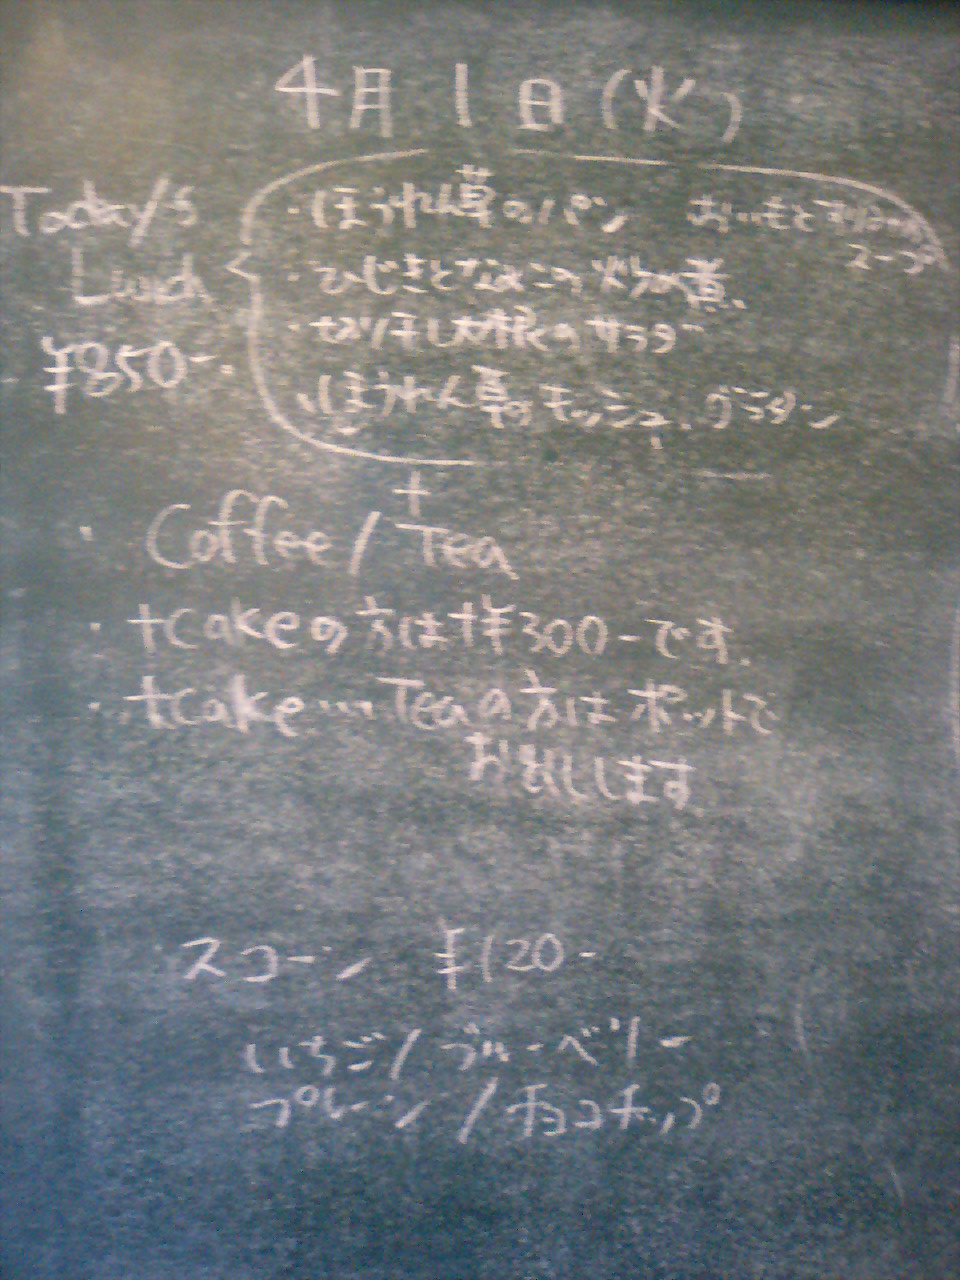 4月1日(火)
Today's
Lunch
¥850-
・ほうれん草のパン おいもと
スープ
・ひじきと の 煮
・切り干し大根のサラダ
・ほうれん草のマッシュ グラタン
+
・Coffee/Tea
・+cakeの方は+¥300-です。
・+cake…Teaの方はポットで
お出しします
スコーン ¥120-
いちご/ブルーベリー
プレーン/チョコチップ